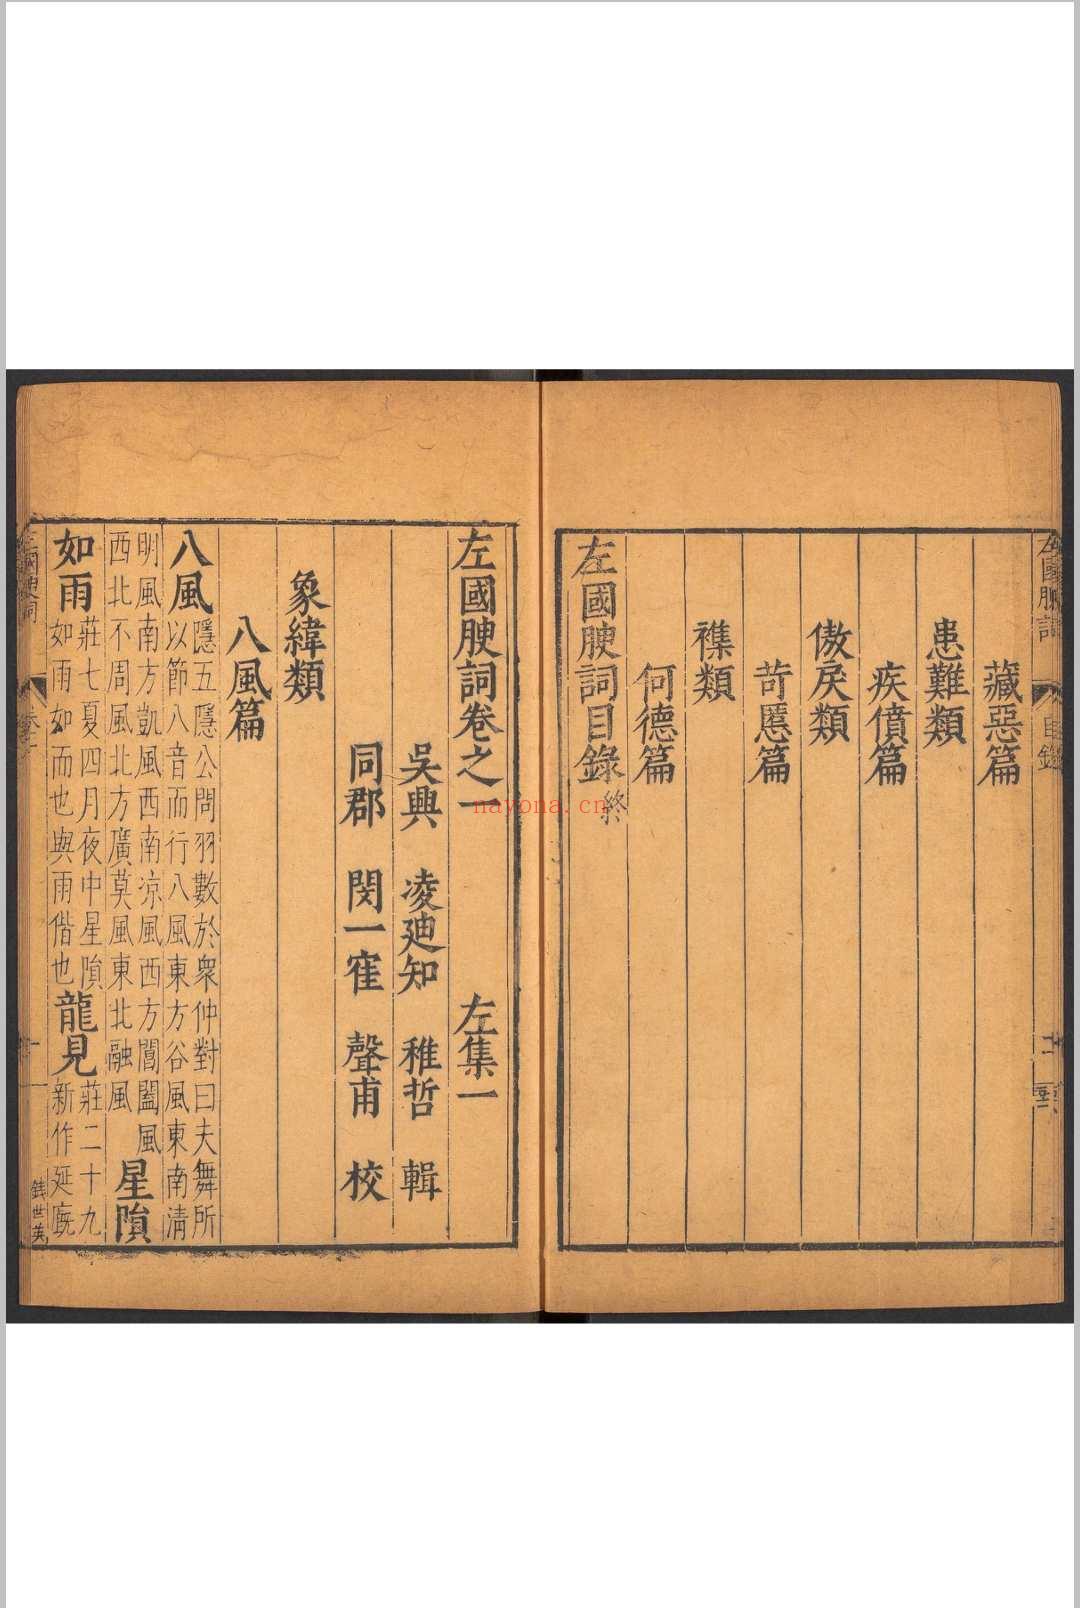 藏惡篇
患難類
疾僨篇
傲戾類
苛慝篇
襍類
何德篇
左國腴詞目錄終
左國腴詞卷之一 左集一
吳興 凌廸知 稚哲 輯
同郡 閔一寉 聲甫 校
象緯類
八風篇
八風隱五隱公問羽數於衆仲對曰夫舞所
以節八音而行八風東方谷風東南清
明風南方凱風西南凉風西方閶闔風
西北不周風北方廣莫風東北融風
星隕
如雨莊七夏四月夜中星隕
如雨如而也與雨偕也
龍見莊二十九
新作延廐
錢世英
nayona.cn